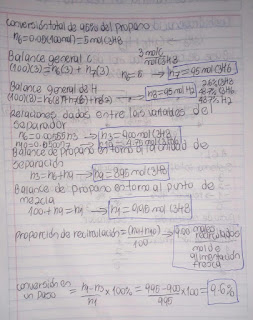 conversión total de 95% del propano
n6=0.05(100mol)=5mol C3H8
Balance general C
3 molC
mol C3H8
(100)(3)=n6(3)+n7(3) n6=5 → n7=95mol C3H6
Balance general de H
(100)(8)=n6(8)+n7(6)+n8(2) → n8=95mol H2
2.6% C3H8
48.7% C3H6
48.7% H2
Relaciones dadas entre las variables de
separador
n6=0.00555n3 → n3=900mol C3H8
n10=0.05n7 → 4.75 mol C3H6
Balance de propano en torno a la unidad de
separación
n3=n6+n9 → n9=895mol C3H8
Balance de propano en torno al punto de
mezcla
100+n9=n1 → n1=995mol C3H8
proporción de recirculación = (n9+n10)/100 → 9.00 moles recirculados
mol de
alimentación
fresca
conversión en
un paso = n1-n3/n1 x100% = 995-900/995 x100 = 9.6%